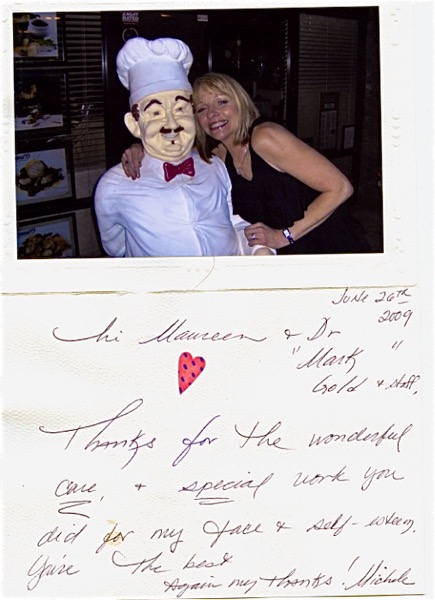 June 26th
2009
Hi Maureen & Dr
"Mark"
Gold & staff,
Thanks for the wonderful
care, & special work you
did for my face & self-esteem.
You're the best
Again my thanks! Michele